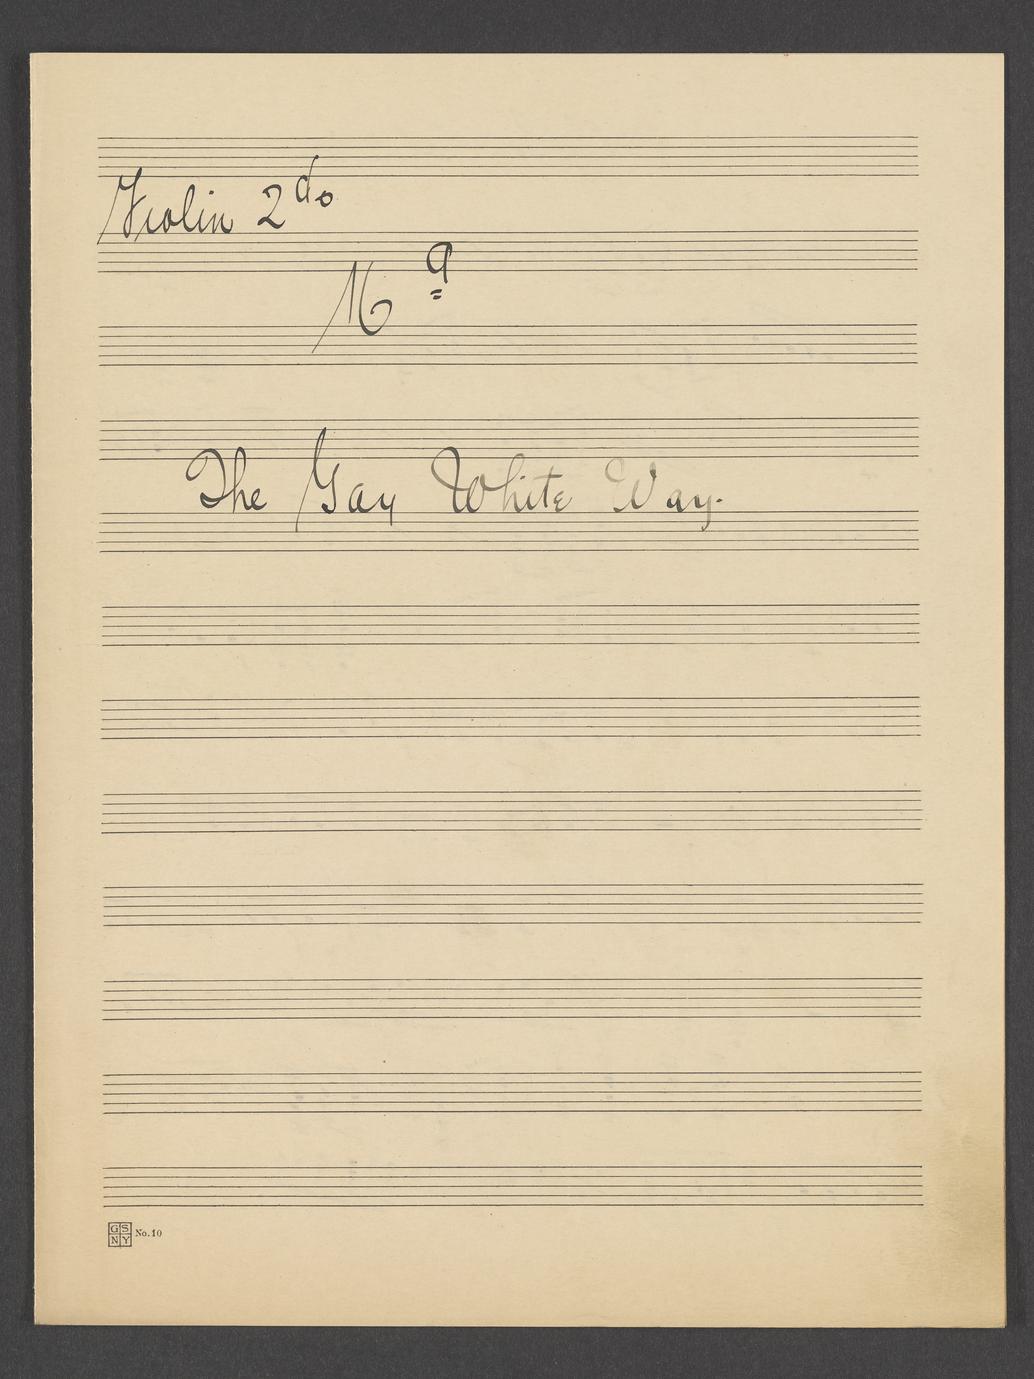 Violin 2do
No 9
The Gay White Way.
GS
NY No. 10